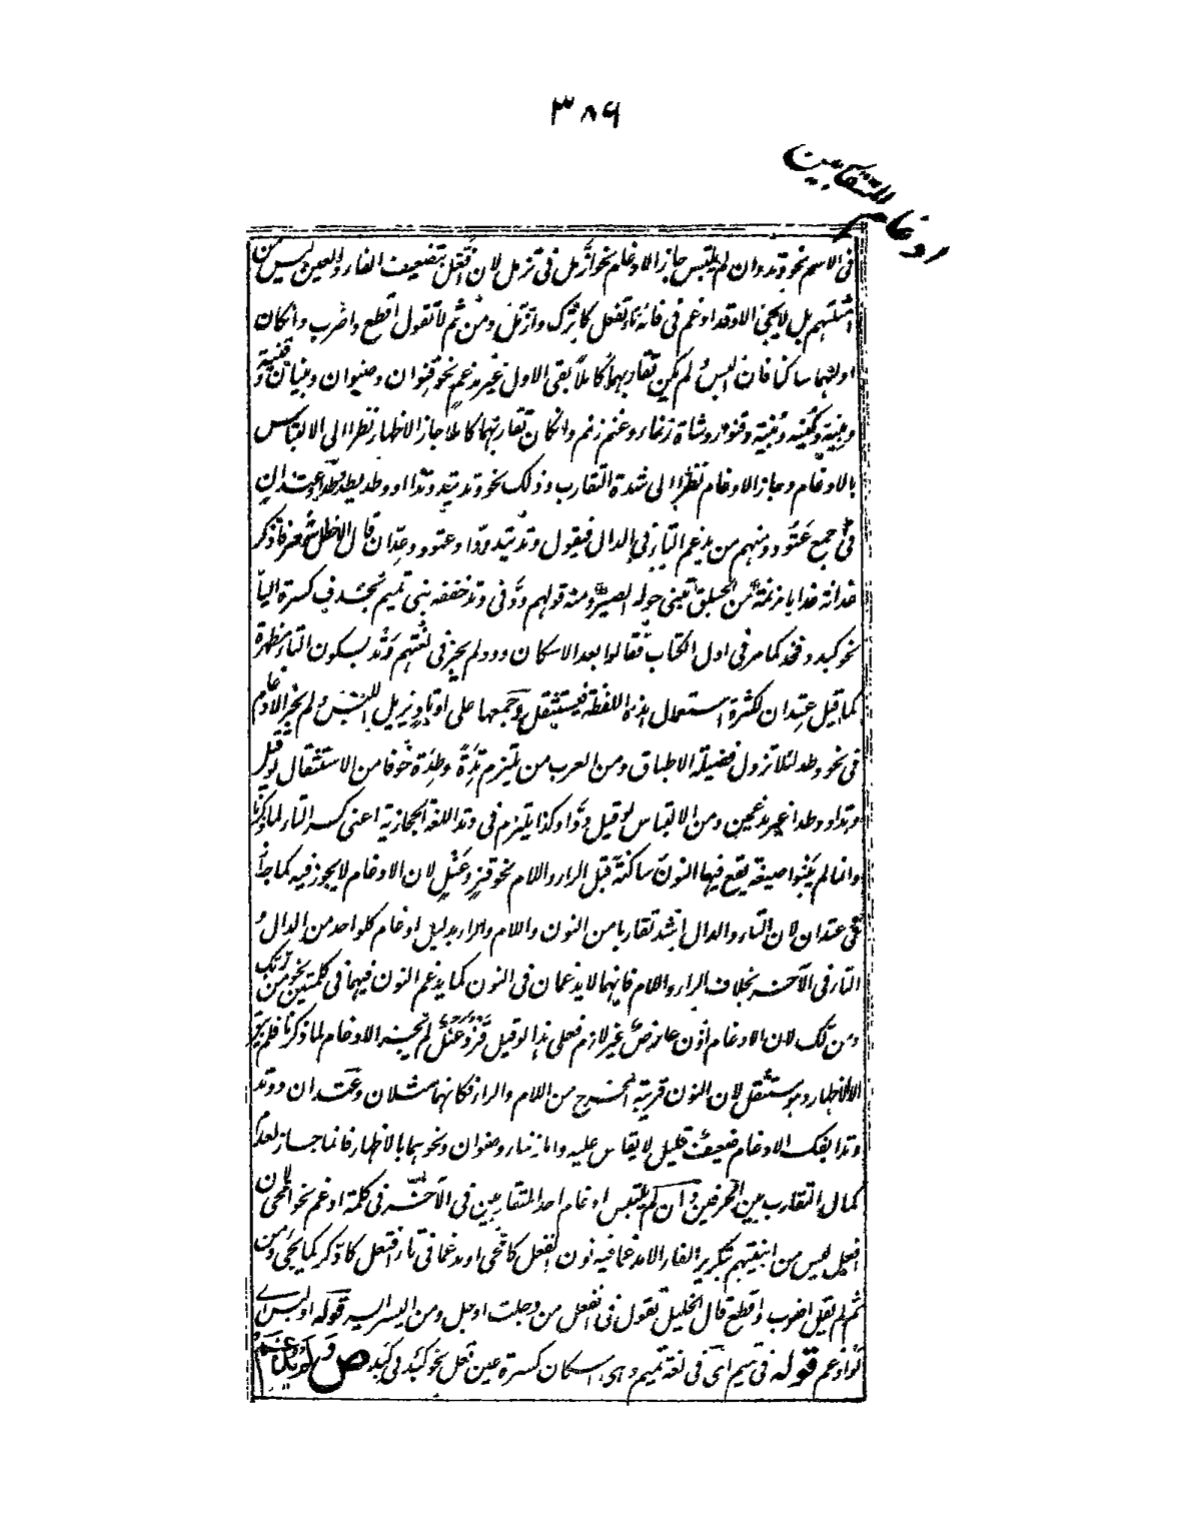 ٣٨٩
ادغام المتقاربين
فى الاسم نحو وتد وان لم يلتبس جاز الادغام نحو ازمل فى تزمل لان افّعل بتضعيف الفاء والعين ليس من
ابنيتهم بل لا يجئ الا وقد ادغم فى فائه تاء تفعل كاترك وازمل ومن ثم لا تقول اقطع واضرب وان كان
اولهما ساكنا فان البس ولم يكن تقاربهما كاملا بقى الاول غير مدغم نحو قنوان وصنوان وبنيان وقنية
وبنية وكنية ومنية وقنواء وشاة زنماء وغنم زنم وان كان تقاربهما كاملا جاز الاظهار نظرا الى الالتباس
بالادغام وجاز الادغام نظرا الى شدة التقارب وذلك نحو وتد يتد وتدا ووطد يطد وطدا وعتدان
فى جمع عتود ومنهم من يدغم التاء فى الدال فيقول وتد يتد ودا وعتود وعدان قال الاخطل شعر فاذكر
غدانة عدانا مزنمة من الحبلق تبنى حوله الصير ومنه قولهم ود فى وتد خففه بنى تميم بحذف كسرة التاء
نحو كبد وفخذ كما مر فى اول الكتاب فقالوا بعد الاسكان ود ولم يجز فى لغتهم وتد بسكون التاء مظهرة
كما قيل عتدان لكثرة استعمال هذه اللفظة فيستثقل وجمعها على اوتاد يزيل اللبس ولم يجز الادغام
فى نحو وطد لئلا تزول فضيلة الاطباق ومن العرب من يلتزم تدة وطدة خوفا من الاستثقال لو قيل
وتدا ووطدا غير مدغمين ومن الالتباس لو قيل ودا وكذا يلتزم فى وتد اللغة الحجازية اعنى كسر التاء لما ذكرنا
وانما لم يبنوا صيغة يقع فيها النون ساكنة قبل الراء واللام نحو قنر وعنل لان الادغام لا يجوز فيه كما جاز
فى عتدان لان التاء والدال اشد تقاربا من النون واللام والراء بدليل ادغام كل واحد من الدال و
التاء فى الآخر بخلاف الراء واللام فانهما لا يدغمان فى النون كما يدغم النون فيهما فى كلمتين نحو من ربك
ومن لك لان الادغام اذن عارض غير لازم فعلى هذا لو قيل قنر وعنل لم يجز الادغام لما ذكرنا فلم يبق
الا الاظهار وهو مستثقل لان النون قريبة المخرج من اللام والراء فكانهما مثلان وعتدان ووتد
وتدا بفك الادغام ضعيف قليل لا يقاس عليه واما زنماء وصنوان ونحوهما بالاظهار فانما جاز لعدم
كمال التقارب بين الحرفين وان لم يلتبس ادغام احد المتقاربين فى الآخر فى كلمة ادغم نحو امحى لان
افعل ليس من ابنيتهم بتكرير الفاء الا مدغما فيه نون انفعل كامحى او مدغما فى تاء افتعل كادكر كما يجئ ومن
ثم لم يقل اضرب واقطع قال الخليل تقول فى انفعل من وجلت اوجل ومن اليسر ايسر قوله او لبس اى
لو ادغم قوله فى تميم اى فى لغة تميم وهى اسكان كسرة عين فعل نحو كبد فى كبد ص